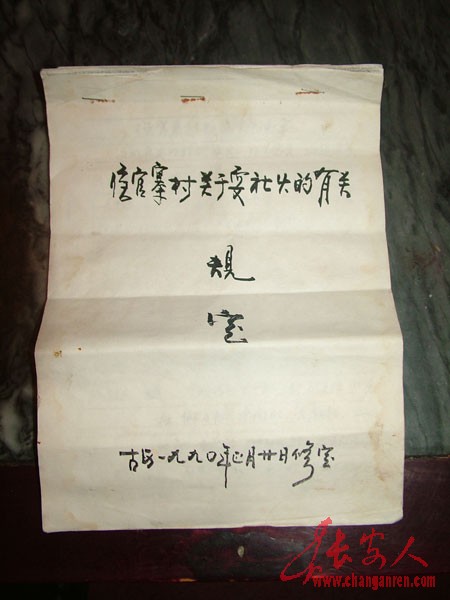 侯官寨村关于耍社火的有关
规
定
古历一九九〇年正月廿日修定
长安人
www.changanren.com